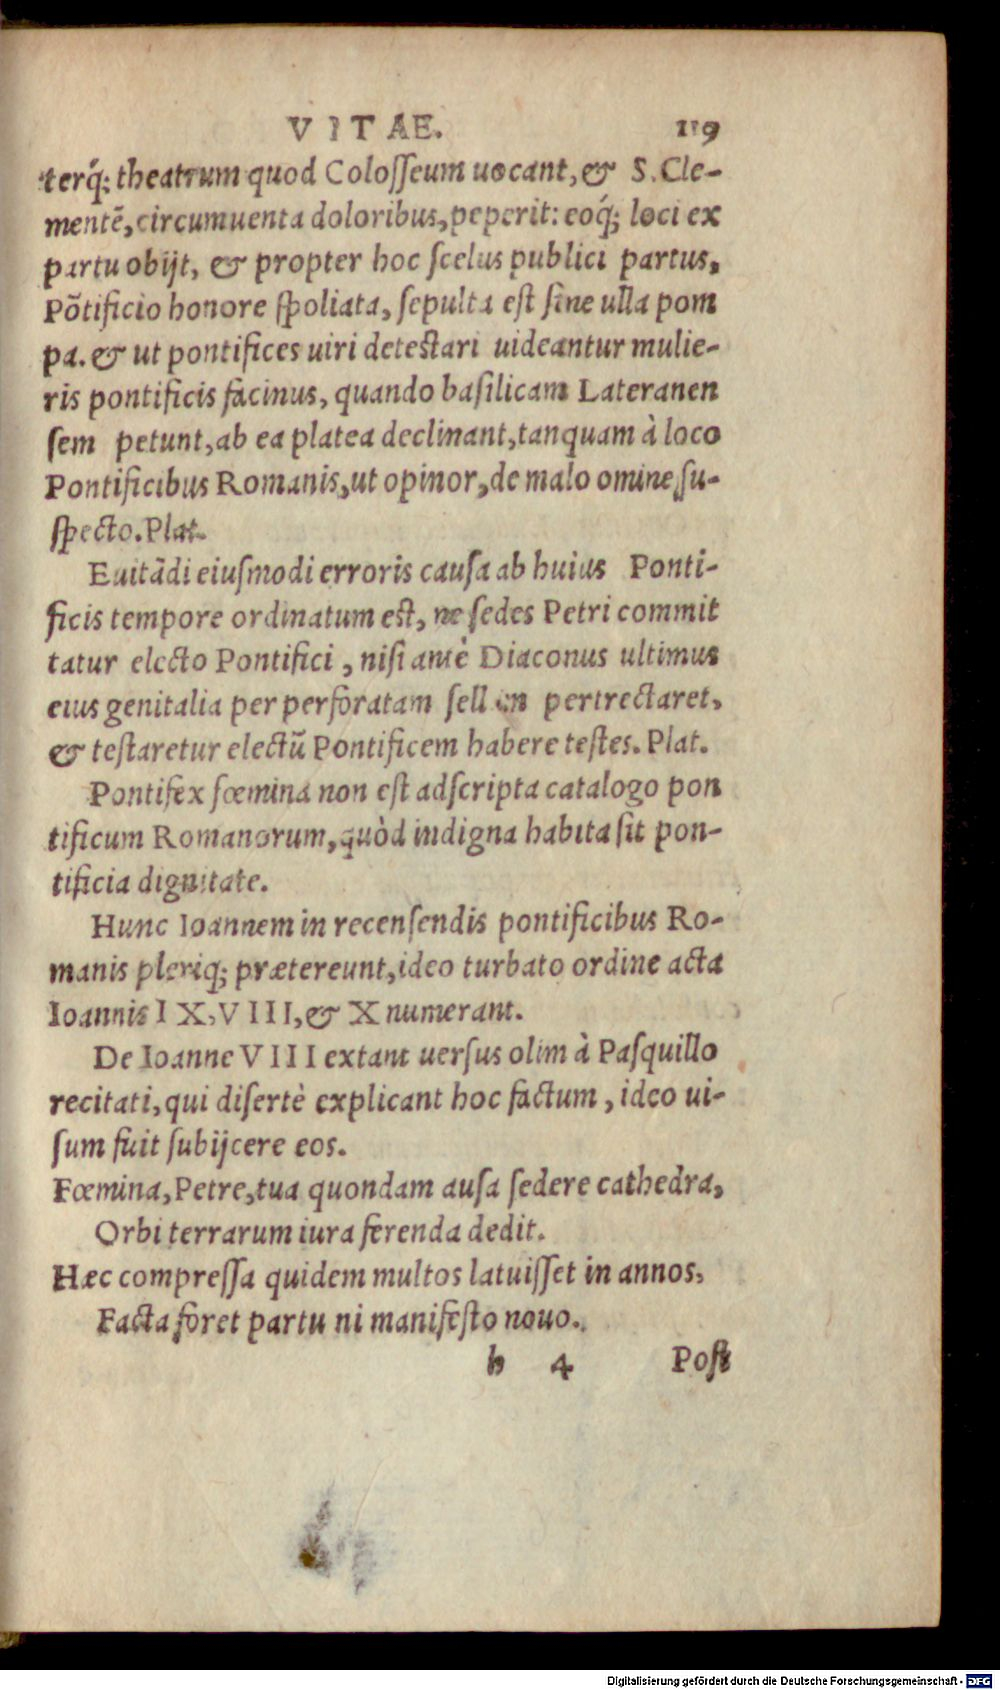 VITAE. 119
terq́; theatrum quod Colosseum uocant, & S. Cle-
mentẽ, circumuenta doloribus, peperit: eoq́; loci ex
partu obijt, & propter hoc scelus publici partus,
Põtificio honore spoliata, sepulta est sine ulla pom
pa. & ut pontifices uiri detestari uideantur mulie-
ris pontificis facinus, quando basilicam Lateranen
sem petunt, ab ea platea declinant, tanquam à loco
Pontificibus Romanis, ut opinor, de malo omine su-
specto. Plat.
Euitãdi eiusmodi erroris causa ab huius Ponti-
ficis tempore ordinatum est, ne sedes Petri commit
tatur electo Pontifici, nisi antè Diaconus ultimus
eius genitalia per perforatam sellam pertrectaret,
& testaretur electũ Pontificem habere testes. Plat.
Pontifex fœmina non est adscripta catalogo pon
tificum Romanorum, quòd indigna habita sit pon-
tificia dignitate.
Hunc Ioannem in recensendis pontificibus Ro-
manis pleriq; prætereunt, ideo turbato ordine acta
Ioannis IX, VIII, & X numerant.
De Ioanne VIII extant uersus olim à Pasquillo
recitati, qui disertè explicant hoc factum, ideo ui-
sum fuit subijcere eos.
Fœmina, Petre, tua quondam ausa sedere cathedra,
Orbi terrarum iura ferenda dedit.
Hæc compressa quidem multos latuisset in annos,
Facta foret partu ni manifesto nouo.
h 4 Post
Digitalisierung gefördert durch die Deutsche Forschungsgemeinschaft - DFG